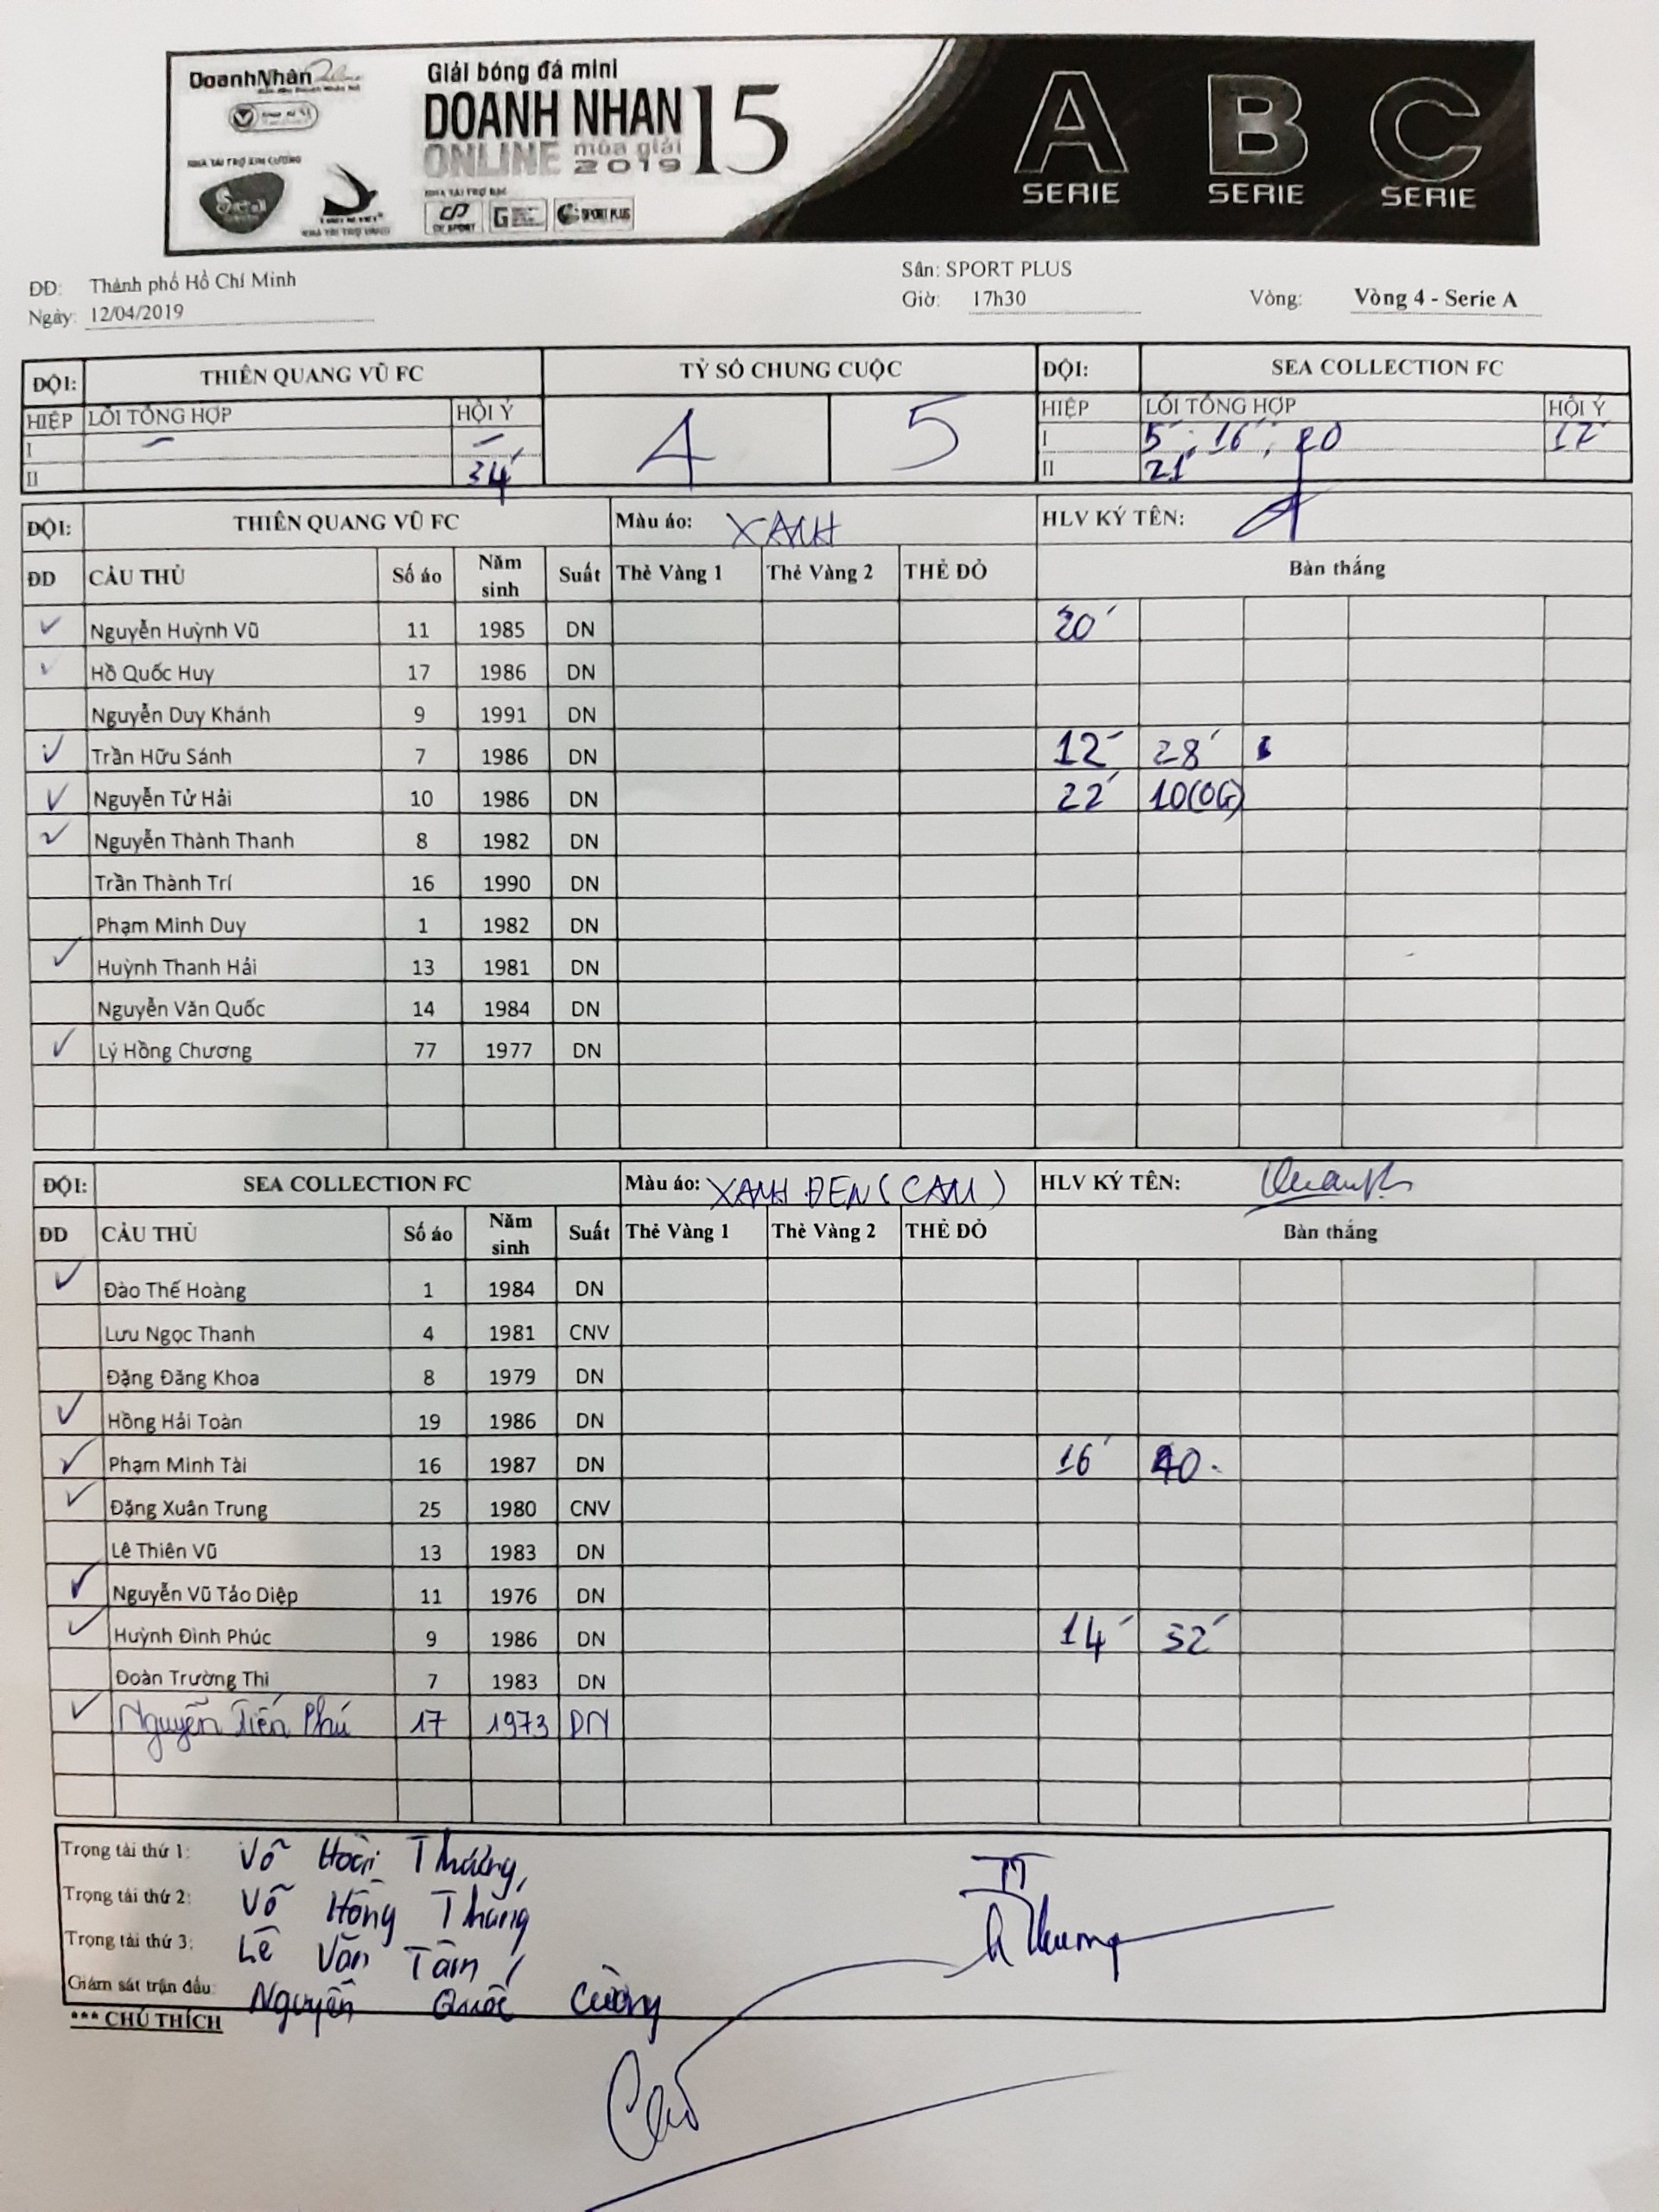 DoanhNhân Online
Giải bóng đá mini
DOANH NHAN
ONLINE mùa giải
2019
15
A SERIE
B SERIE
C SERIE
NHÀ TÀI TRỢ KIM CƯƠNG
NHÀ TÀI TRỢ BẠC
SPORT PLUS
ĐĐ: Thành phố Hồ Chí Minh
Sân: SPORT PLUS
Ngày: 12/04/2019
Giờ: 17h30
Vòng: Vòng 4 - Serie A
ĐỘI: THIÊN QUANG VŨ FC TỶ SỐ CHUNG CUỘC ĐỘI: SEA COLLECTION FC
HIỆP LỖI TỔNG HỢP HỘI Ý 4 5 HIỆP LỖI TỔNG HỢP HỘI Ý
I - - I 5' ; 16' ; 20 17'
II 34' II 21'
ĐỘI: THIÊN QUANG VŨ FC Màu áo: XANH HLV KÝ TÊN:
ĐD CẦU THỦ Số áo Năm sinh Suất Thẻ Vàng 1 Thẻ Vàng 2 THẺ ĐỎ Bàn thắng
✓ Nguyễn Huỳnh Vũ 11 1985 DN 20'
✓ Hồ Quốc Huy 17 1986 DN
Nguyễn Duy Khánh 9 1991 DN
✓ Trần Hữu Sánh 7 1986 DN 12' 28'
✓ Nguyễn Tử Hải 10 1986 DN 22' 10(OG)
✓ Nguyễn Thành Thanh 8 1982 DN
Trần Thành Trí 16 1990 DN
Phạm Minh Duy 1 1982 DN
✓ Huỳnh Thanh Hải 13 1981 DN
Nguyễn Văn Quốc 14 1984 DN
✓ Lý Hồng Chương 77 1977 DN
ĐỘI: SEA COLLECTION FC Màu áo: XANH ĐEN (CAM) HLV KÝ TÊN:
ĐD CẦU THỦ Số áo Năm sinh Suất Thẻ Vàng 1 Thẻ Vàng 2 THẺ ĐỎ Bàn thắng
✓ Đào Thế Hoàng 1 1984 DN
Lưu Ngọc Thanh 4 1981 CNV
Đặng Đăng Khoa 8 1979 DN
✓ Hồng Hải Toàn 19 1986 DN
✓ Phạm Minh Tài 16 1987 DN 16' 40
✓ Đặng Xuân Trung 25 1980 CNV
Lê Thiên Vũ 13 1983 DN
✓ Nguyễn Vũ Tảo Diệp 11 1976 DN
✓ Huỳnh Đình Phúc 9 1986 DN 14' 32'
Đoàn Trường Thi 7 1983 DN
✓ Nguyễn Tiến Phú 17 1973 DN
Trọng tài thứ 1: Võ Hoài Thương
Trọng tài thứ 2: Võ Hồng Thắng
Trọng tài thứ 3: Lê Văn Tâm
Giám sát trận đấu: Nguyễn Quốc Cường
TT
*** CHÚ THÍCH